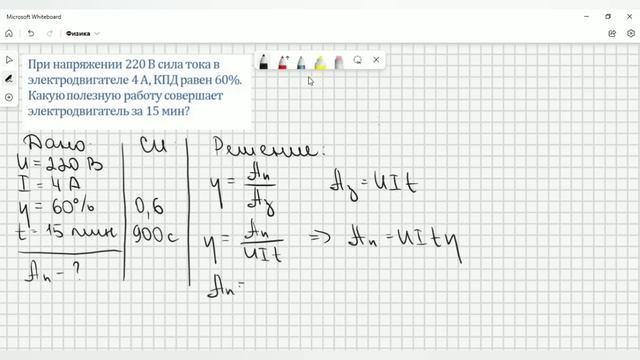 Microsoft Whiteboard
Физика
При напряжении 220 В сила тока в
электродвигателе 4 А, КПД равен 60%.
Какую полезную работу совершает
электродвигатель за 15 мин?
Дано СИ Решение:
U = 220 В
I = 4 А
η = 60% 0,6
t = 15 мин 900 с
Aп - ?
η = Aп / Aз Aз = UIt
η = Aп / UIt => Aп = UItη
Aп =